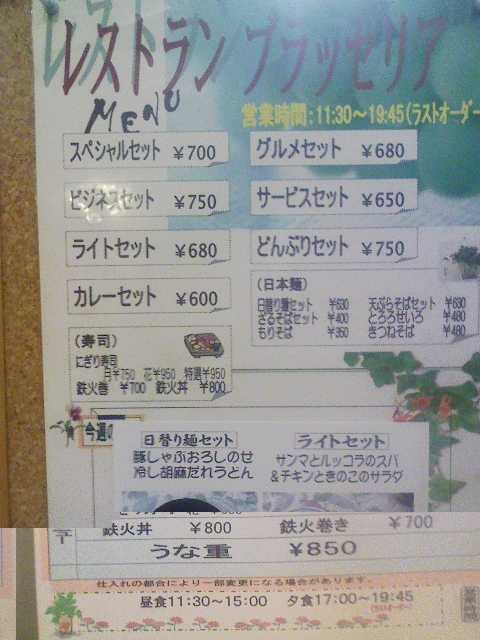 レストラン ブラッセリア
MENU
営業時間：11:30～19:45（ラストオーダー
スペシャルセット ￥700
グルメセット ￥680
ビジネスセット ￥750
サービスセット ￥650
ライトセット ￥680
どんぶりセット ￥750
カレーセット ￥600
（日本麺）
日替り麺セット ￥630 天ぷらそばセット ￥630
ざるそばセット ￥400 とろろせいろ ￥480
もりそば ￥350 きつねそば ￥480
（寿司）
にぎり寿司
月￥750 花￥950 特選￥950
鉄火巻 ￥700 鉄火丼 ￥800
今週の
日替り麺セット
豚しゃぶおろしのせ
冷し胡麻だれうどん
ライトセット
サンマとルッコラのスパ
＆チキンときのこのサラダ
鉄火丼 ￥800 鉄火巻き ￥700
うな重 ￥850
仕入れの都合により一部変更になる場合があります。
昼食11:30～15:00 夕食17:00～19:45
(ラストオーダー)
営業時間